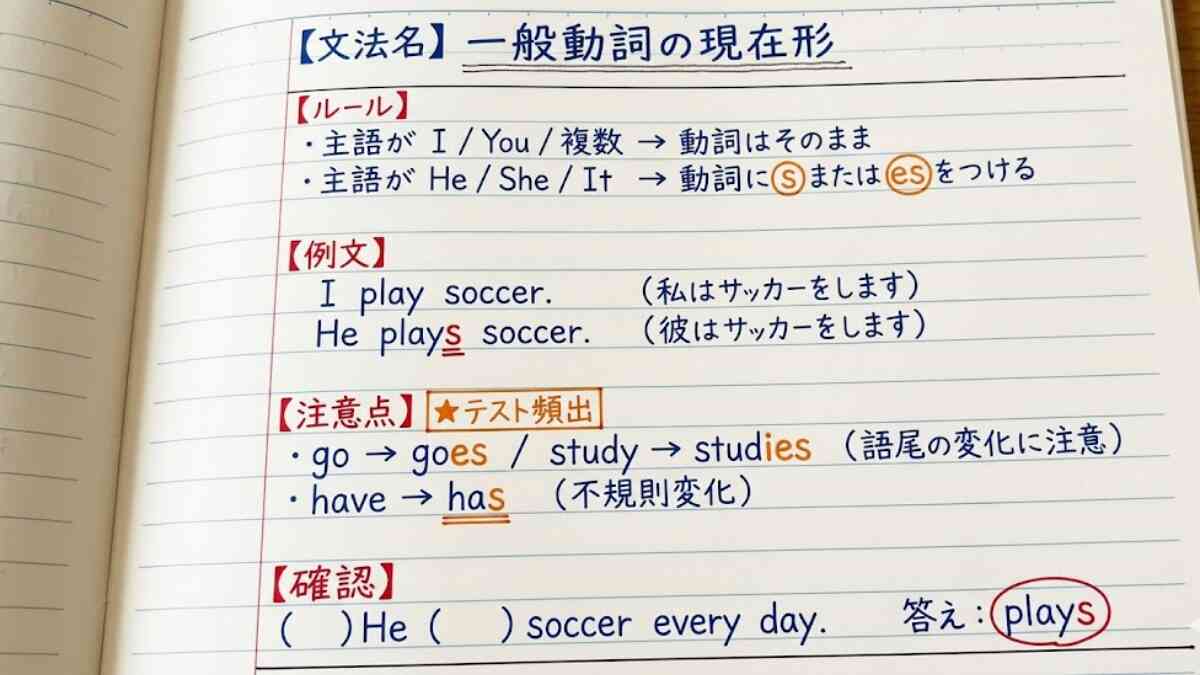 【文法名】一般動詞の現在形
【ルール】
・主語が I / You / 複数 → 動詞はそのまま
・主語が He / She / It → 動詞に s または es をつける
【例文】
I play soccer. （私はサッカーをします）
He plays soccer. （彼はサッカーをします）
【注意点】 ★テスト頻出
・go → goes / study → studies （語尾の変化に注意）
・have → has （不規則変化）
【確認】
( ) He ( ) soccer every day. 答え：plays